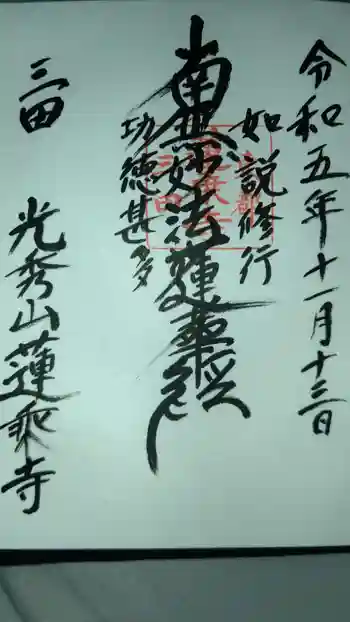 令和五年十一月十三日
如説修行
南無妙法蓮華経
功徳甚多
三田 光秀山蓮乘寺